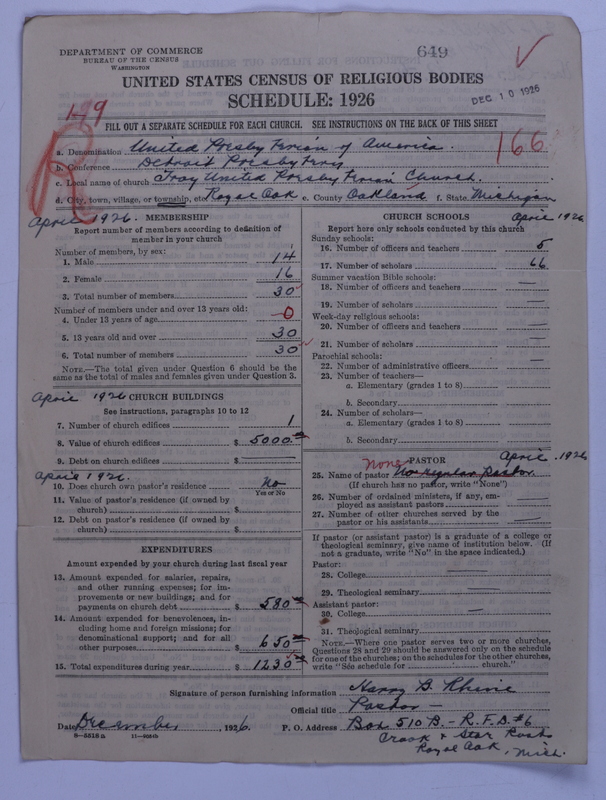 DEPARTMENT OF COMMERCE
BUREAU OF THE CENSUS
WASHINGTON
649
UNITED STATES CENSUS OF RELIGIOUS BODIES
SCHEDULE: 1926
DEC 10 1926
149
FILL OUT A SEPARATE SCHEDULE FOR EACH CHURCH. SEE INSTRUCTIONS ON THE BACK OF THIS SHEET
166
a. Denomination United Presbyterian of America.
b. Conference Detroit Presbytery
c. Local name of church Troy United Presbyterian Church.
d. City, town, village, or township, etc. Royal Oak e. County Oakland f. State Michigan
April 1926. MEMBERSHIP
Report number of members according to definition of member in your church
Number of members, by sex:
1. Male 14
2. Female 16
3. Total number of members 30
Number of members under and over 13 years old:
4. Under 13 years of age 0
5. 13 years old and over 30
6. Total number of members 30
NOTE.—The total given under Question 6 should be the
same as the total of males and females given under Question 3.
April 1926 CHURCH BUILDINGS
See instructions, paragraphs 10 to 12
7. Number of church edifices 1
8. Value of church edifices $ 5000.00
9. Debt on church edifices $
April 1926.
10. Does church own pastor's residence No
Yes or No
11. Value of pastor's residence (if owned by
church) $
12. Debt on pastor's residence (if owned by
church) $
EXPENDITURES
Amount expended by your church during last fiscal year
13. Amount expended for salaries, repairs,
and other running expenses; for im-
provements or new buildings; and for
payments on church debt $ 580.00
14. Amount expended for benevolences, in-
cluding home and foreign missions; for
denominational support; and for all
other purposes $ 650.00
15. Total expenditures during year $ 1230.00
CHURCH SCHOOLS April 1926
Report here only schools conducted by this church
Sunday schools:
16. Number of officers and teachers 5
17. Number of scholars 66
Summer vacation Bible schools:
18. Number of officers and teachers —
19. Number of scholars —
Week-day religious schools:
20. Number of officers and teachers —
21. Number of scholars —
Parochial schools:
22. Number of administrative officers
23. Number of teachers—
a. Elementary (grades 1 to 8)
b. Secondary
24. Number of scholars—
a. Elementary (grades 1 to 8)
b. Secondary
PASTOR April 1926
none
25. Name of pastor No regular pastor.
(If church has no pastor, write "None")
26. Number of ordained ministers, if any, em-
ployed as assistant pastors
27. Number of other churches served by the
pastor or his assistants —
If pastor (or assistant pastor) is a graduate of a college or
theological seminary, give name of institution below. (If
not a graduate, write "No" in the space indicated.)
Pastor:
28. College —
29. Theological seminary —
Assistant pastor:
30. College —
31. Theological seminary
NOTE.—Where one pastor serves two or more churches,
Questions 28 and 29 should be answered only on the schedule
for one of the churches; on the schedules for the other churches,
write "See schedule for church."
Signature of person furnishing information Harry B. Rhine
Official title Pastor —
Date December, 1926. P. O. Address Box 510 B. - R.F.D. #6
8—5518 b 11—9554b
Crook & Star Roads
Royal Oak, Mich.